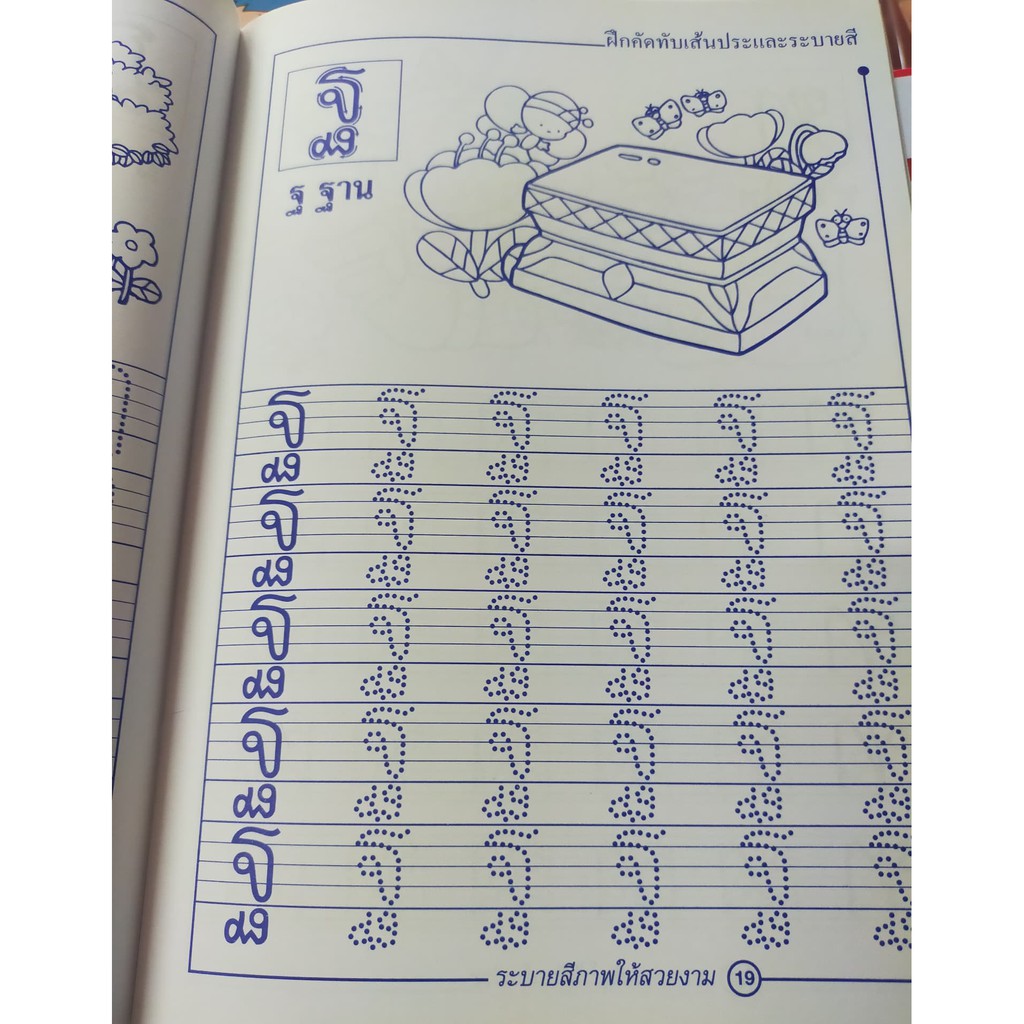 ฝึกคัดทับเส้นประและระบายสี
ฐ
ฐ ฐาน
ฐ ฐ ฐ ฐ ฐ ฐ
ฐ ฐ ฐ ฐ ฐ ฐ
ฐ ฐ ฐ ฐ ฐ ฐ
ฐ ฐ ฐ ฐ ฐ ฐ
ฐ ฐ ฐ ฐ ฐ ฐ
ระบายสีภาพให้สวยงาม 19